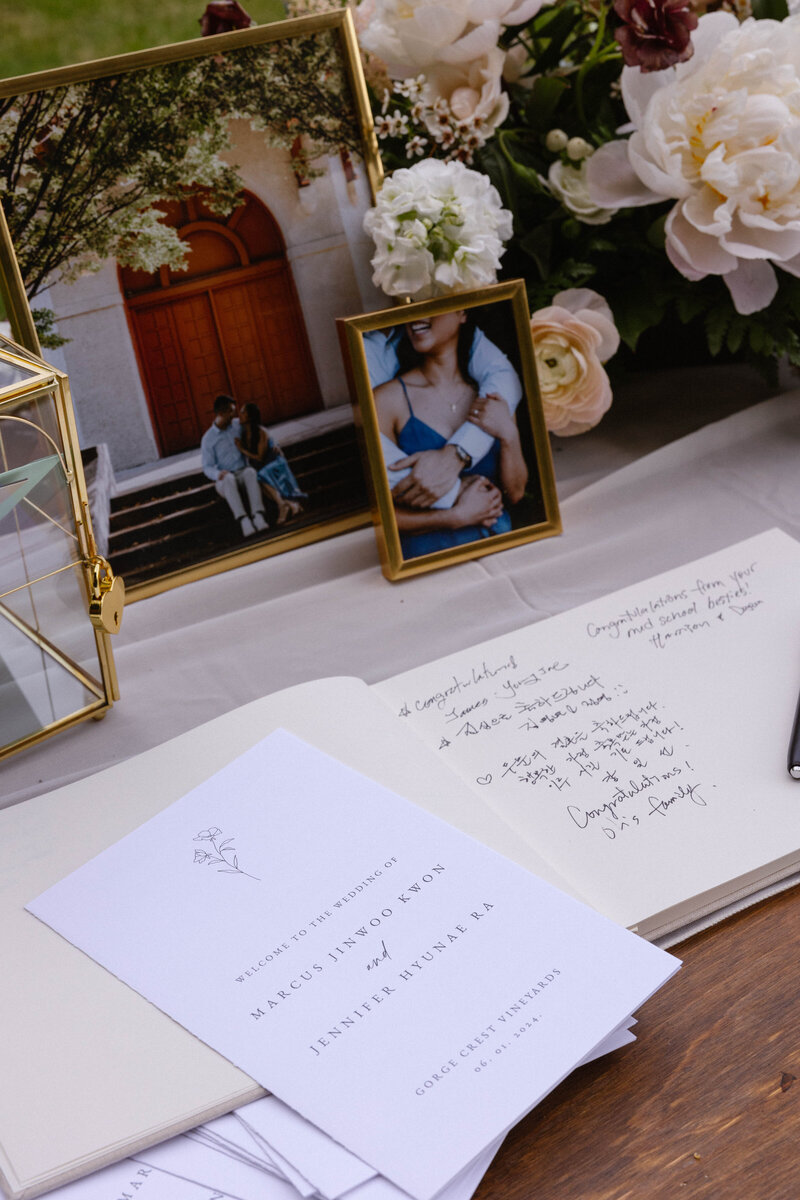 Congratulations from your
med school besties!
Harrison &
congratulations
James. Young Jae
진심으로 축하드립니다
축하드립니다.
행복한 가정
기도 드립니다!
Congratulations!
family.
WELCOME TO THE WEDDING OF
MARCUS JINWOO KWON
and
JENNIFER HYUNAE RA
GORGE CREST VINEYARDS
06. 01. 2024.
MAR